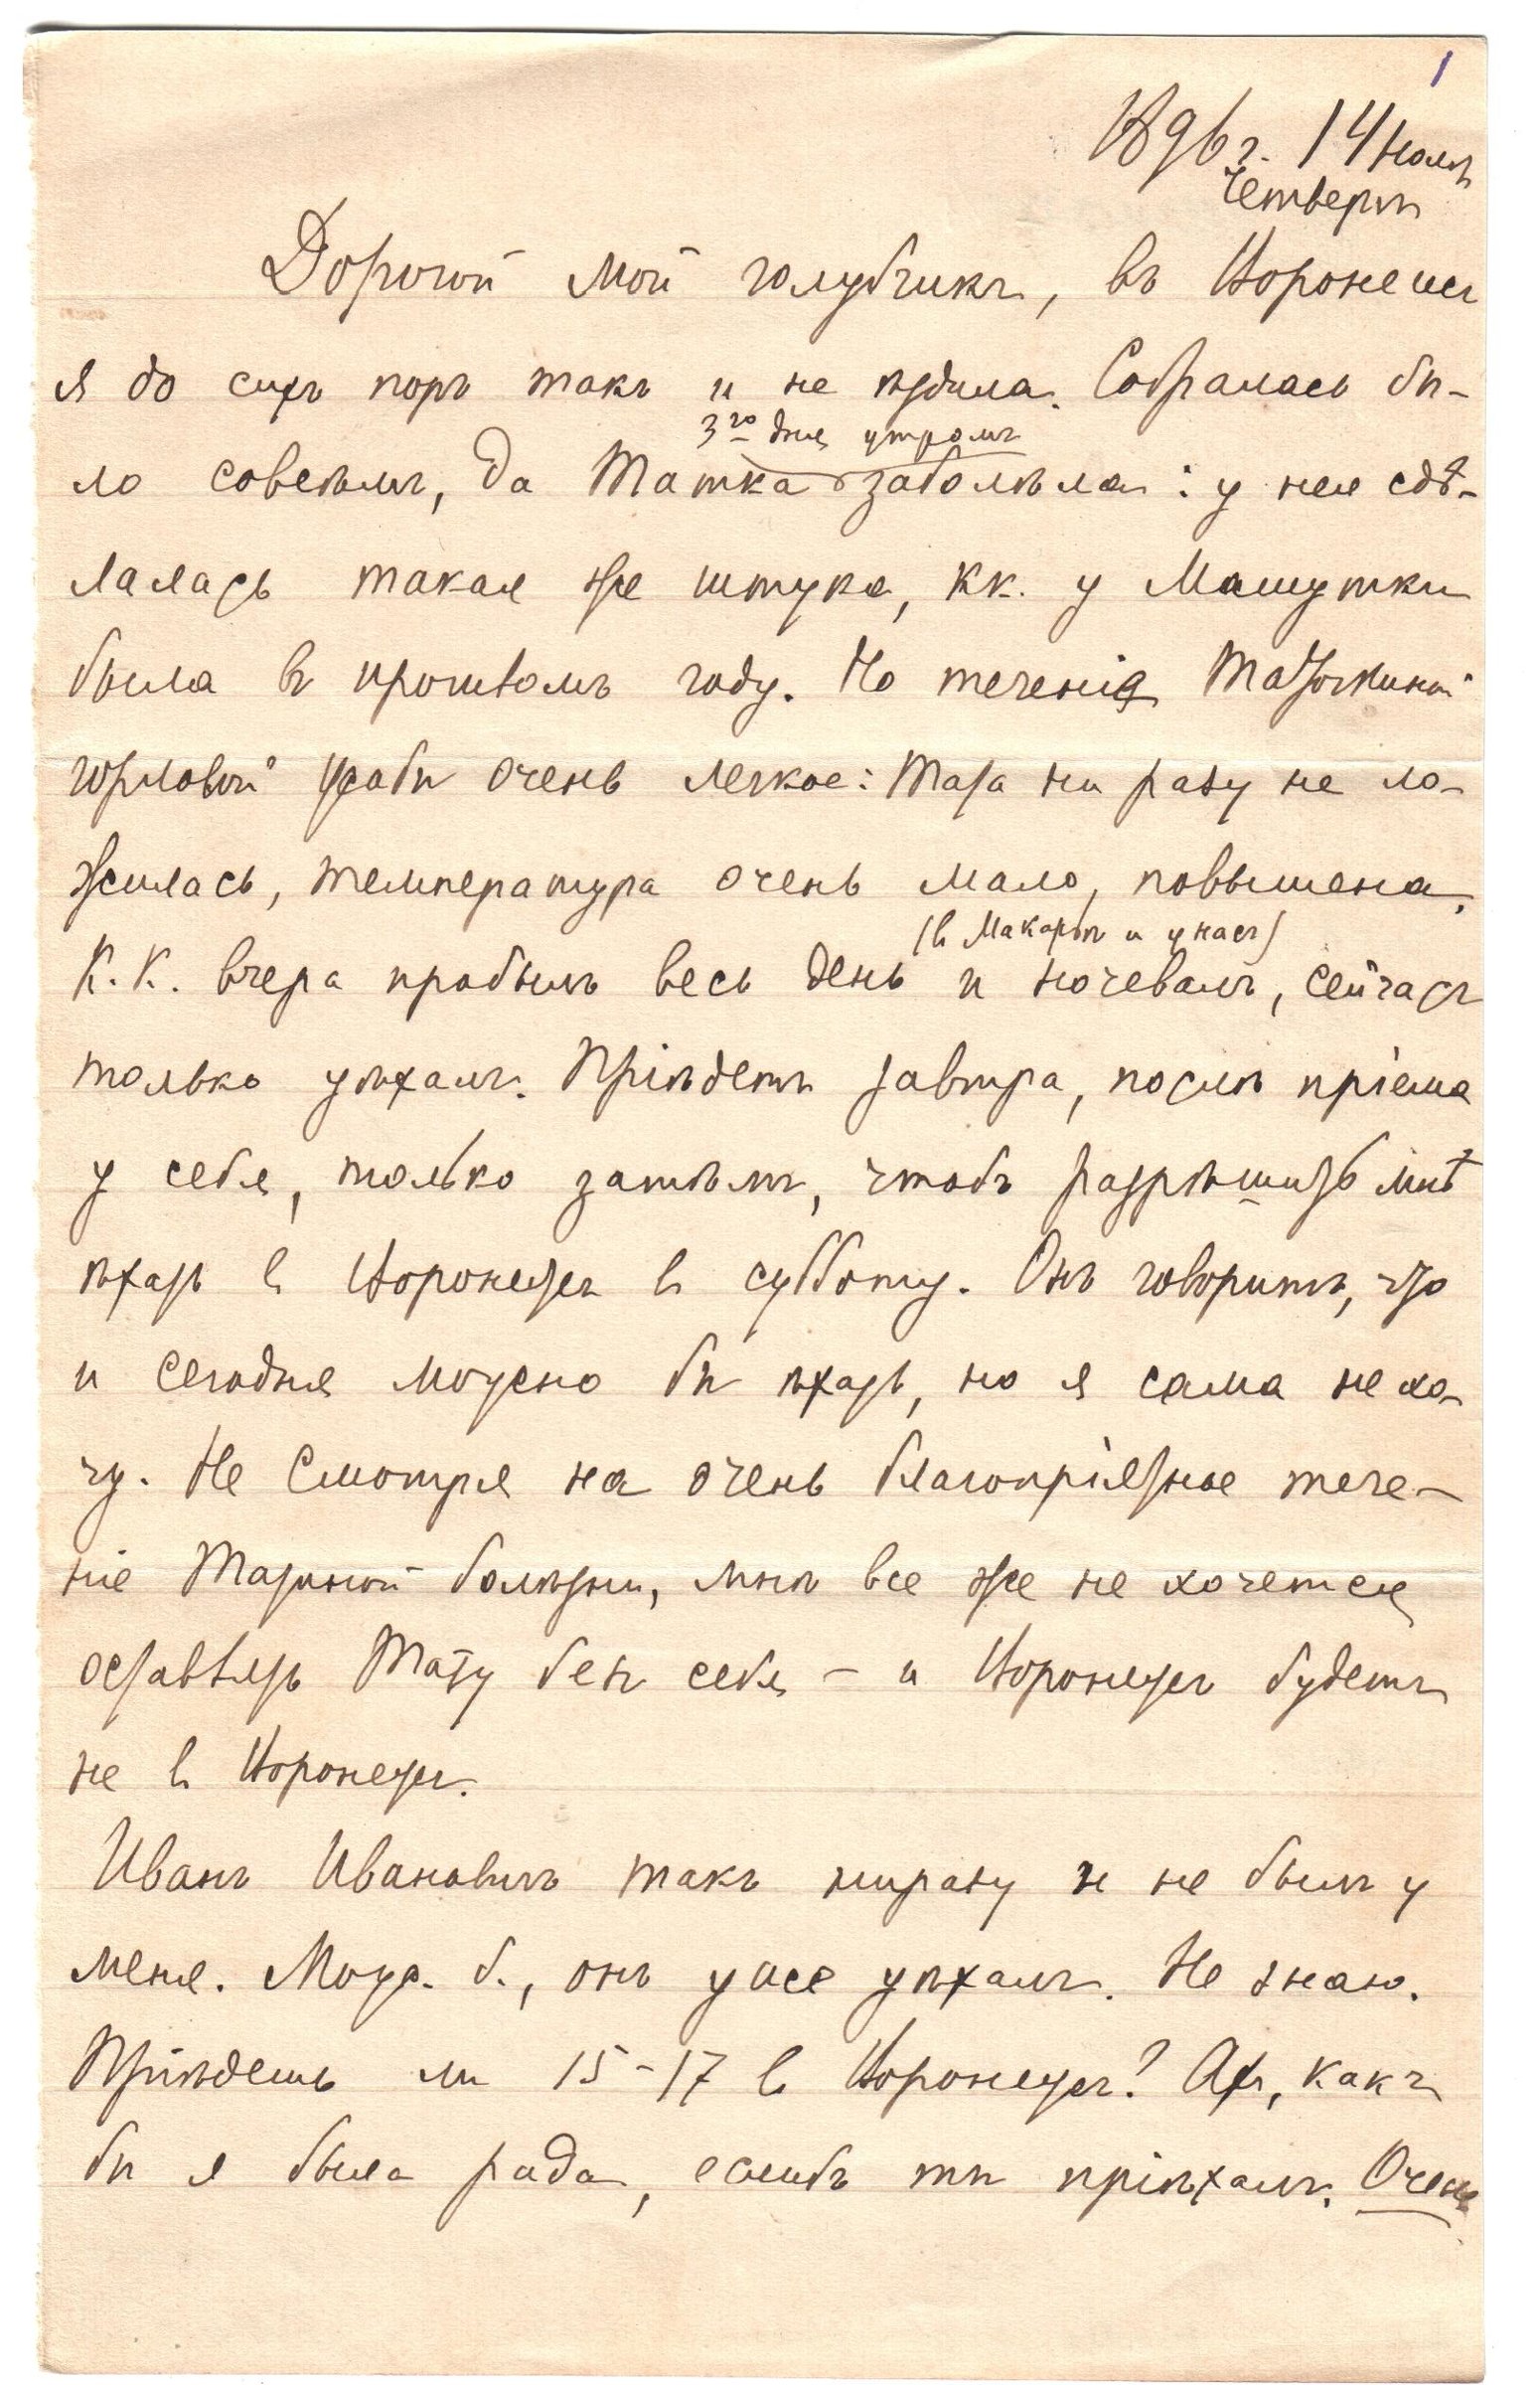 1
1896 г. 14 Іюля
Четвергъ
Дорогой мой голубчикъ, въ Воронежъ
я до сихъ поръ такъ и не ѣздила. Собралась бы-
3го дня утромъ
ло совсѣмъ, да Татка заболѣла: у нея сдѣ-
лалась такая же штука, кк. у Машутки
была въ прошломъ году. Но теченіе Таточкиной
горловой жабы очень легкое: Тата ни разу не ло-
жилась, температура очень мало повышена.
(в Макарьѣ и у насъ)
К. К. вчера пробылъ весь день и ночевалъ, сейчасъ
только уѣхалъ. Пріѣдетъ завтра, послѣ пріема
у себя, только затѣмъ, чтобъ разрѣшить мнѣ
ѣхать в Воронежъ в субботу. Онъ говоритъ, что
и сегодня можно бы ѣхать, но я сама не хо-
чу. Не смотря на очень благопріятное тече-
ніе Татиной болѣзни, мнѣ все же не хочется
оставлять Тату безъ себя – и Воронежъ будетъ
не в Воронежъ.
Иванъ Ивановичъ такъ ниразу и не былъ у
меня. Мож. б., онъ уже уѣхалъ. Не знаю.
Пріѣдешь ли 15–17 в Воронежъ? Ахъ, какъ
бы я была рада, еслибъ ты пріѣхалъ. Очень